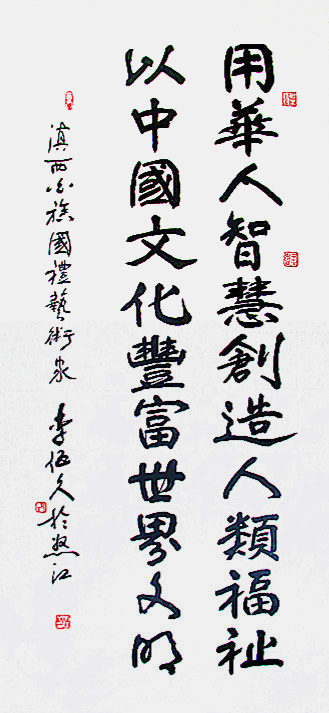 用華人智慧創造人類福祉
以中國文化豐富世界文明
滇西白族國禮藝術家 李伍久於怒江